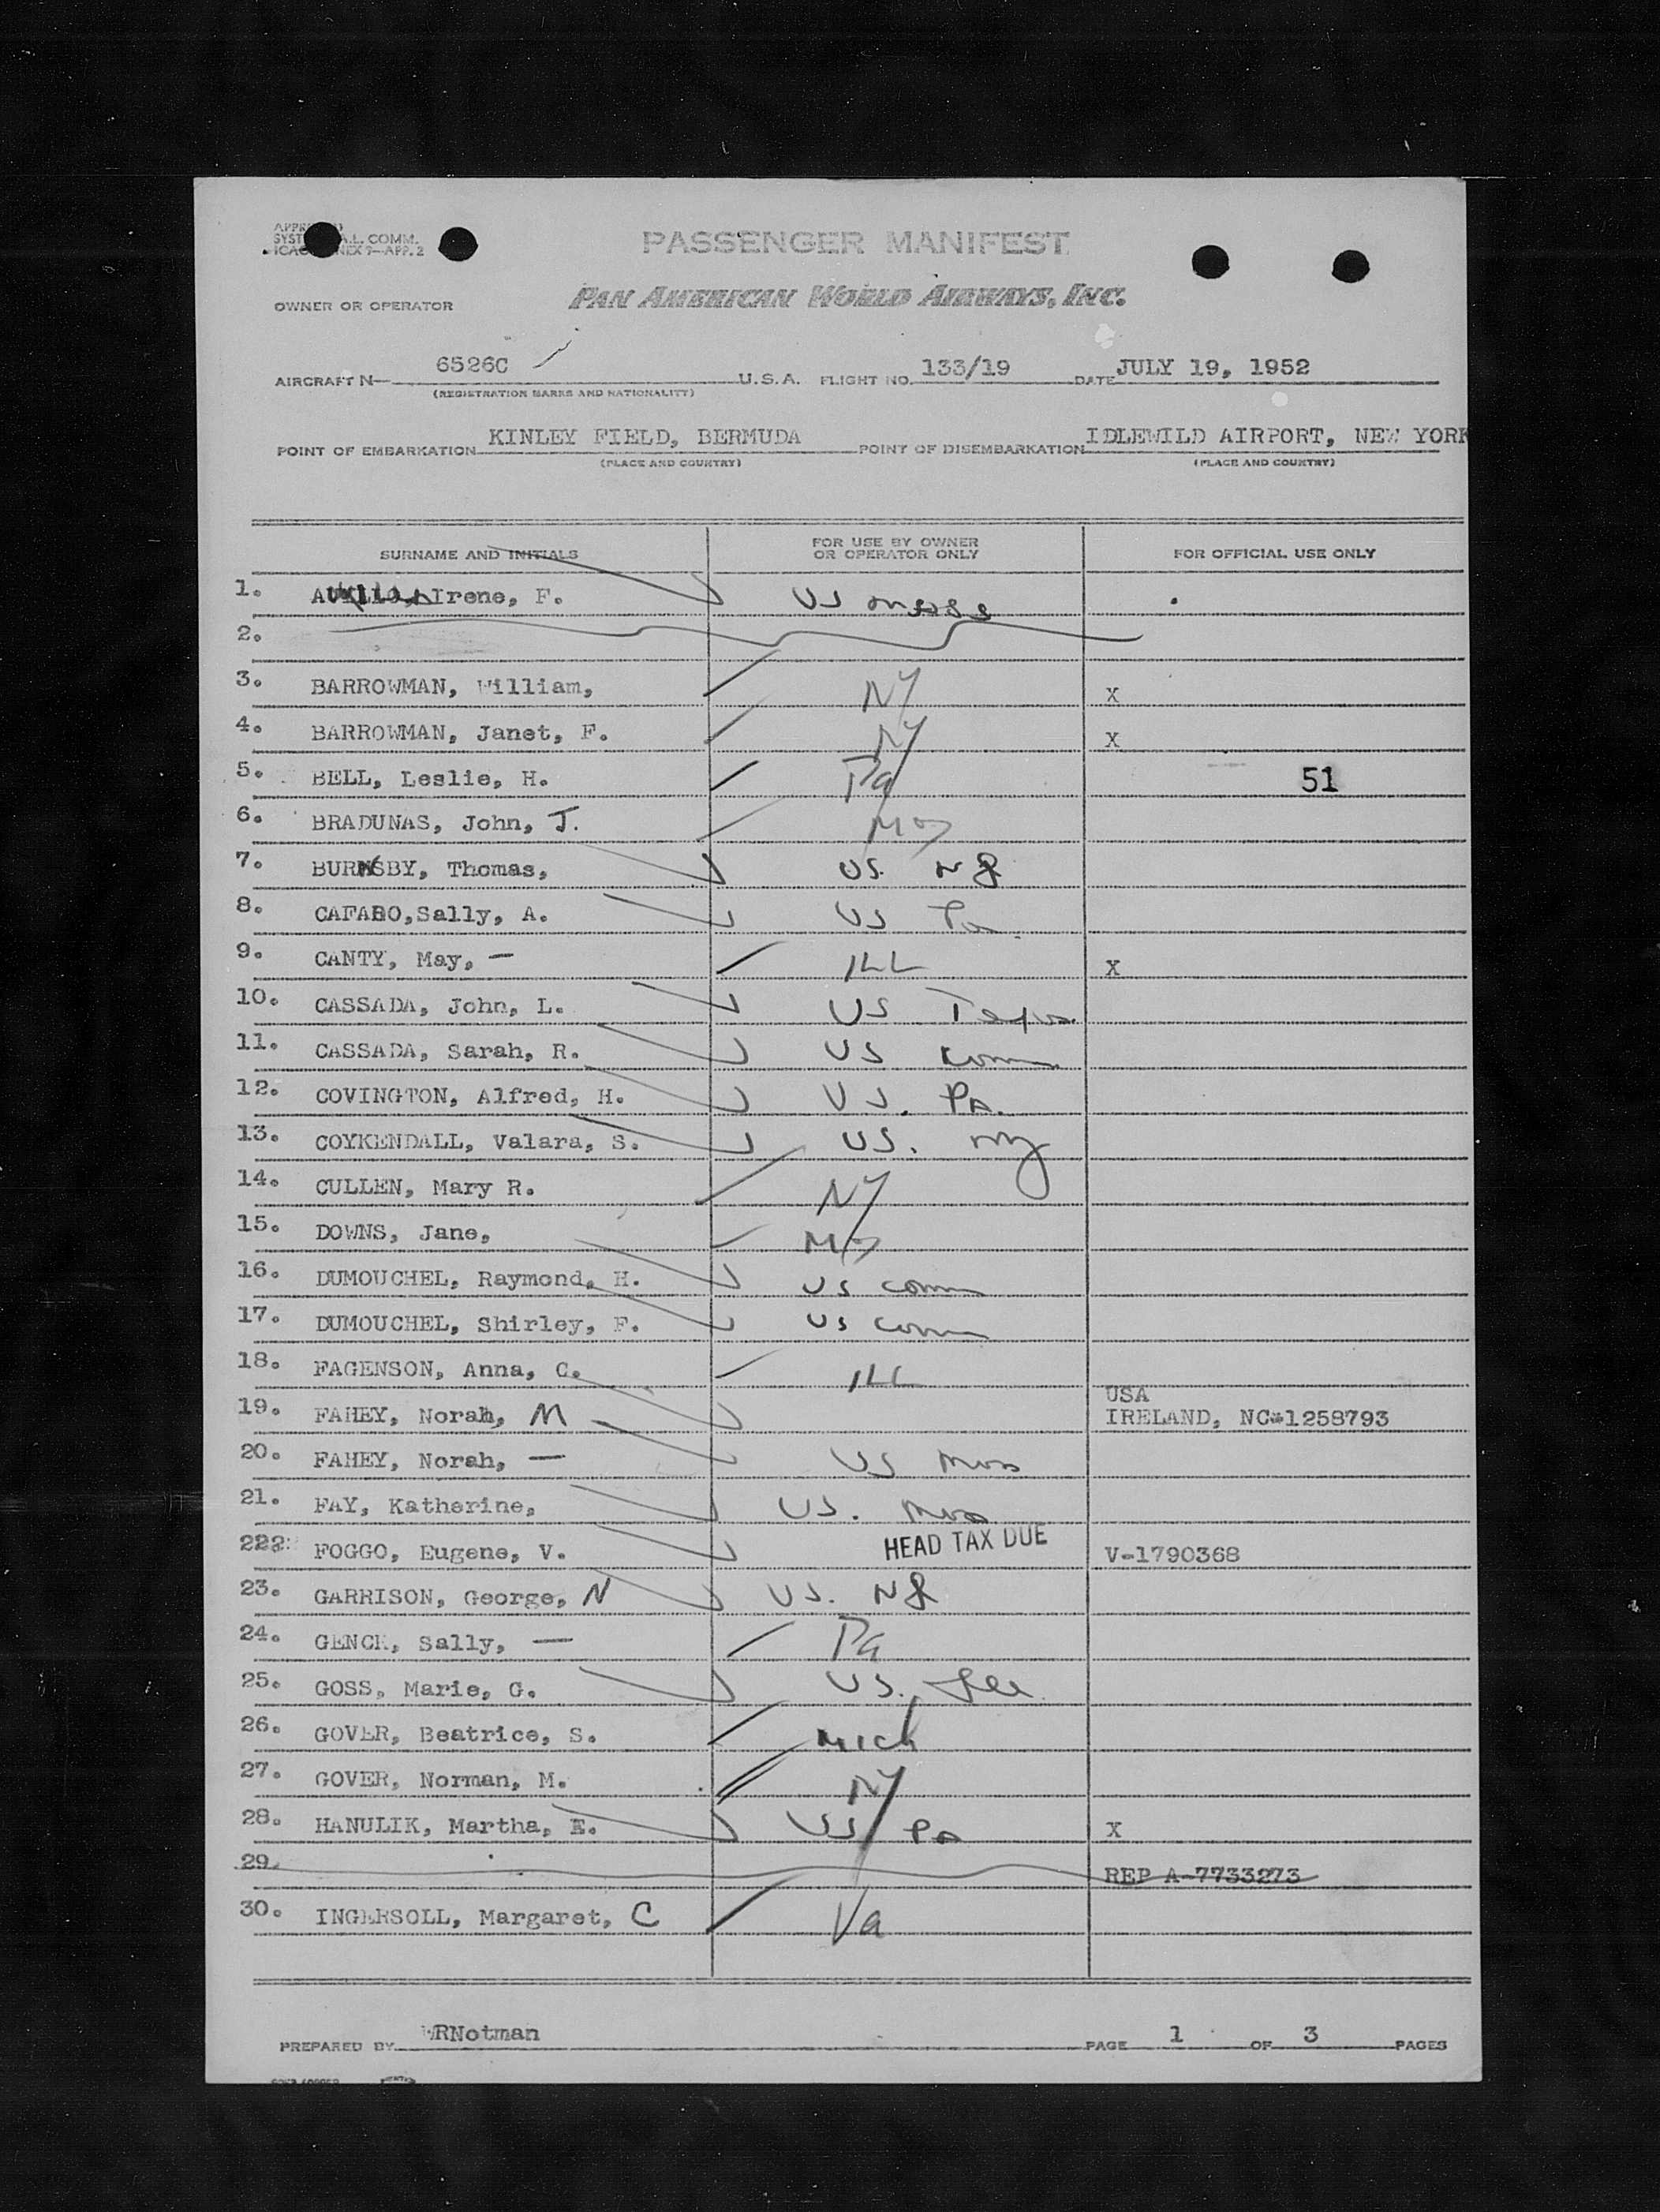 SYST A.L. COMM.
ICAO NEX 9—APP. 2
PASSENGER MANIFEST
OWNER OR OPERATOR PAN AMERICAN WORLD AIRWAYS, INC.
AIRCRAFT N— 6526C U.S.A. FLIGHT NO. 133/19 DATE JULY 19, 1952
(REGISTRATION MARKS AND NATIONALITY)
POINT OF EMBARKATION KINLEY FIELD, BERMUDA POINT OF DISEMBARKATION IDLEWILD AIRPORT, NEW YORK
(PLACE AND COUNTRY) (PLACE AND COUNTRY)
SURNAME AND INITIALS FOR USE BY OWNER OR OPERATOR ONLY FOR OFFICIAL USE ONLY
1. Irene, F. US mass
2.
3. BARROWMAN, William, NY X
4. BARROWMAN, Janet, F. NY X
5. BELL, Leslie, H. Pa 51
6. BRADUNAS, John, J.
7. BURNSBY, Thomas, US. NJ
8. Sally, A. US Pa
9. CANTY, May, — ILL X
10. CASSADA, John, L. US Texas
11. CASSADA, Sarah, R. US Conn
12. COVINGTON, Alfred, H. US. Pa.
13. COYKENDALL, Valara, S. US. ny
14. CULLEN, Mary R. NY
15. DOWNS, Jane,
16. DUMOUCHEL, Raymond, H. US conn
17. DUMOUCHEL, Shirley, F. US conn
18. FAGENSON, Anna, C. ILL
USA
19. FAHEY, Norah, M IRELAND, NC#1258793
20. FAHEY, Norah, — US mass
21. FAY, Katherine, US. mass
222: FOGGO, Eugene, V. HEAD TAX DUE V-1790368
23. GARRISON, George, N US. NJ
24. GENCK, Sally, — Pa
25. GOSS, Marie, G. US.
26. GOVER, Beatrice, S. Mich
27. GOVER, Norman, M. NY
28. HANULIK, Martha, E. US Pa X
29. REP A-7733273
30. INGERSOLL, Margaret, C Va
PREPARED BY WRNotman PAGE 1 OF 3 PAGES